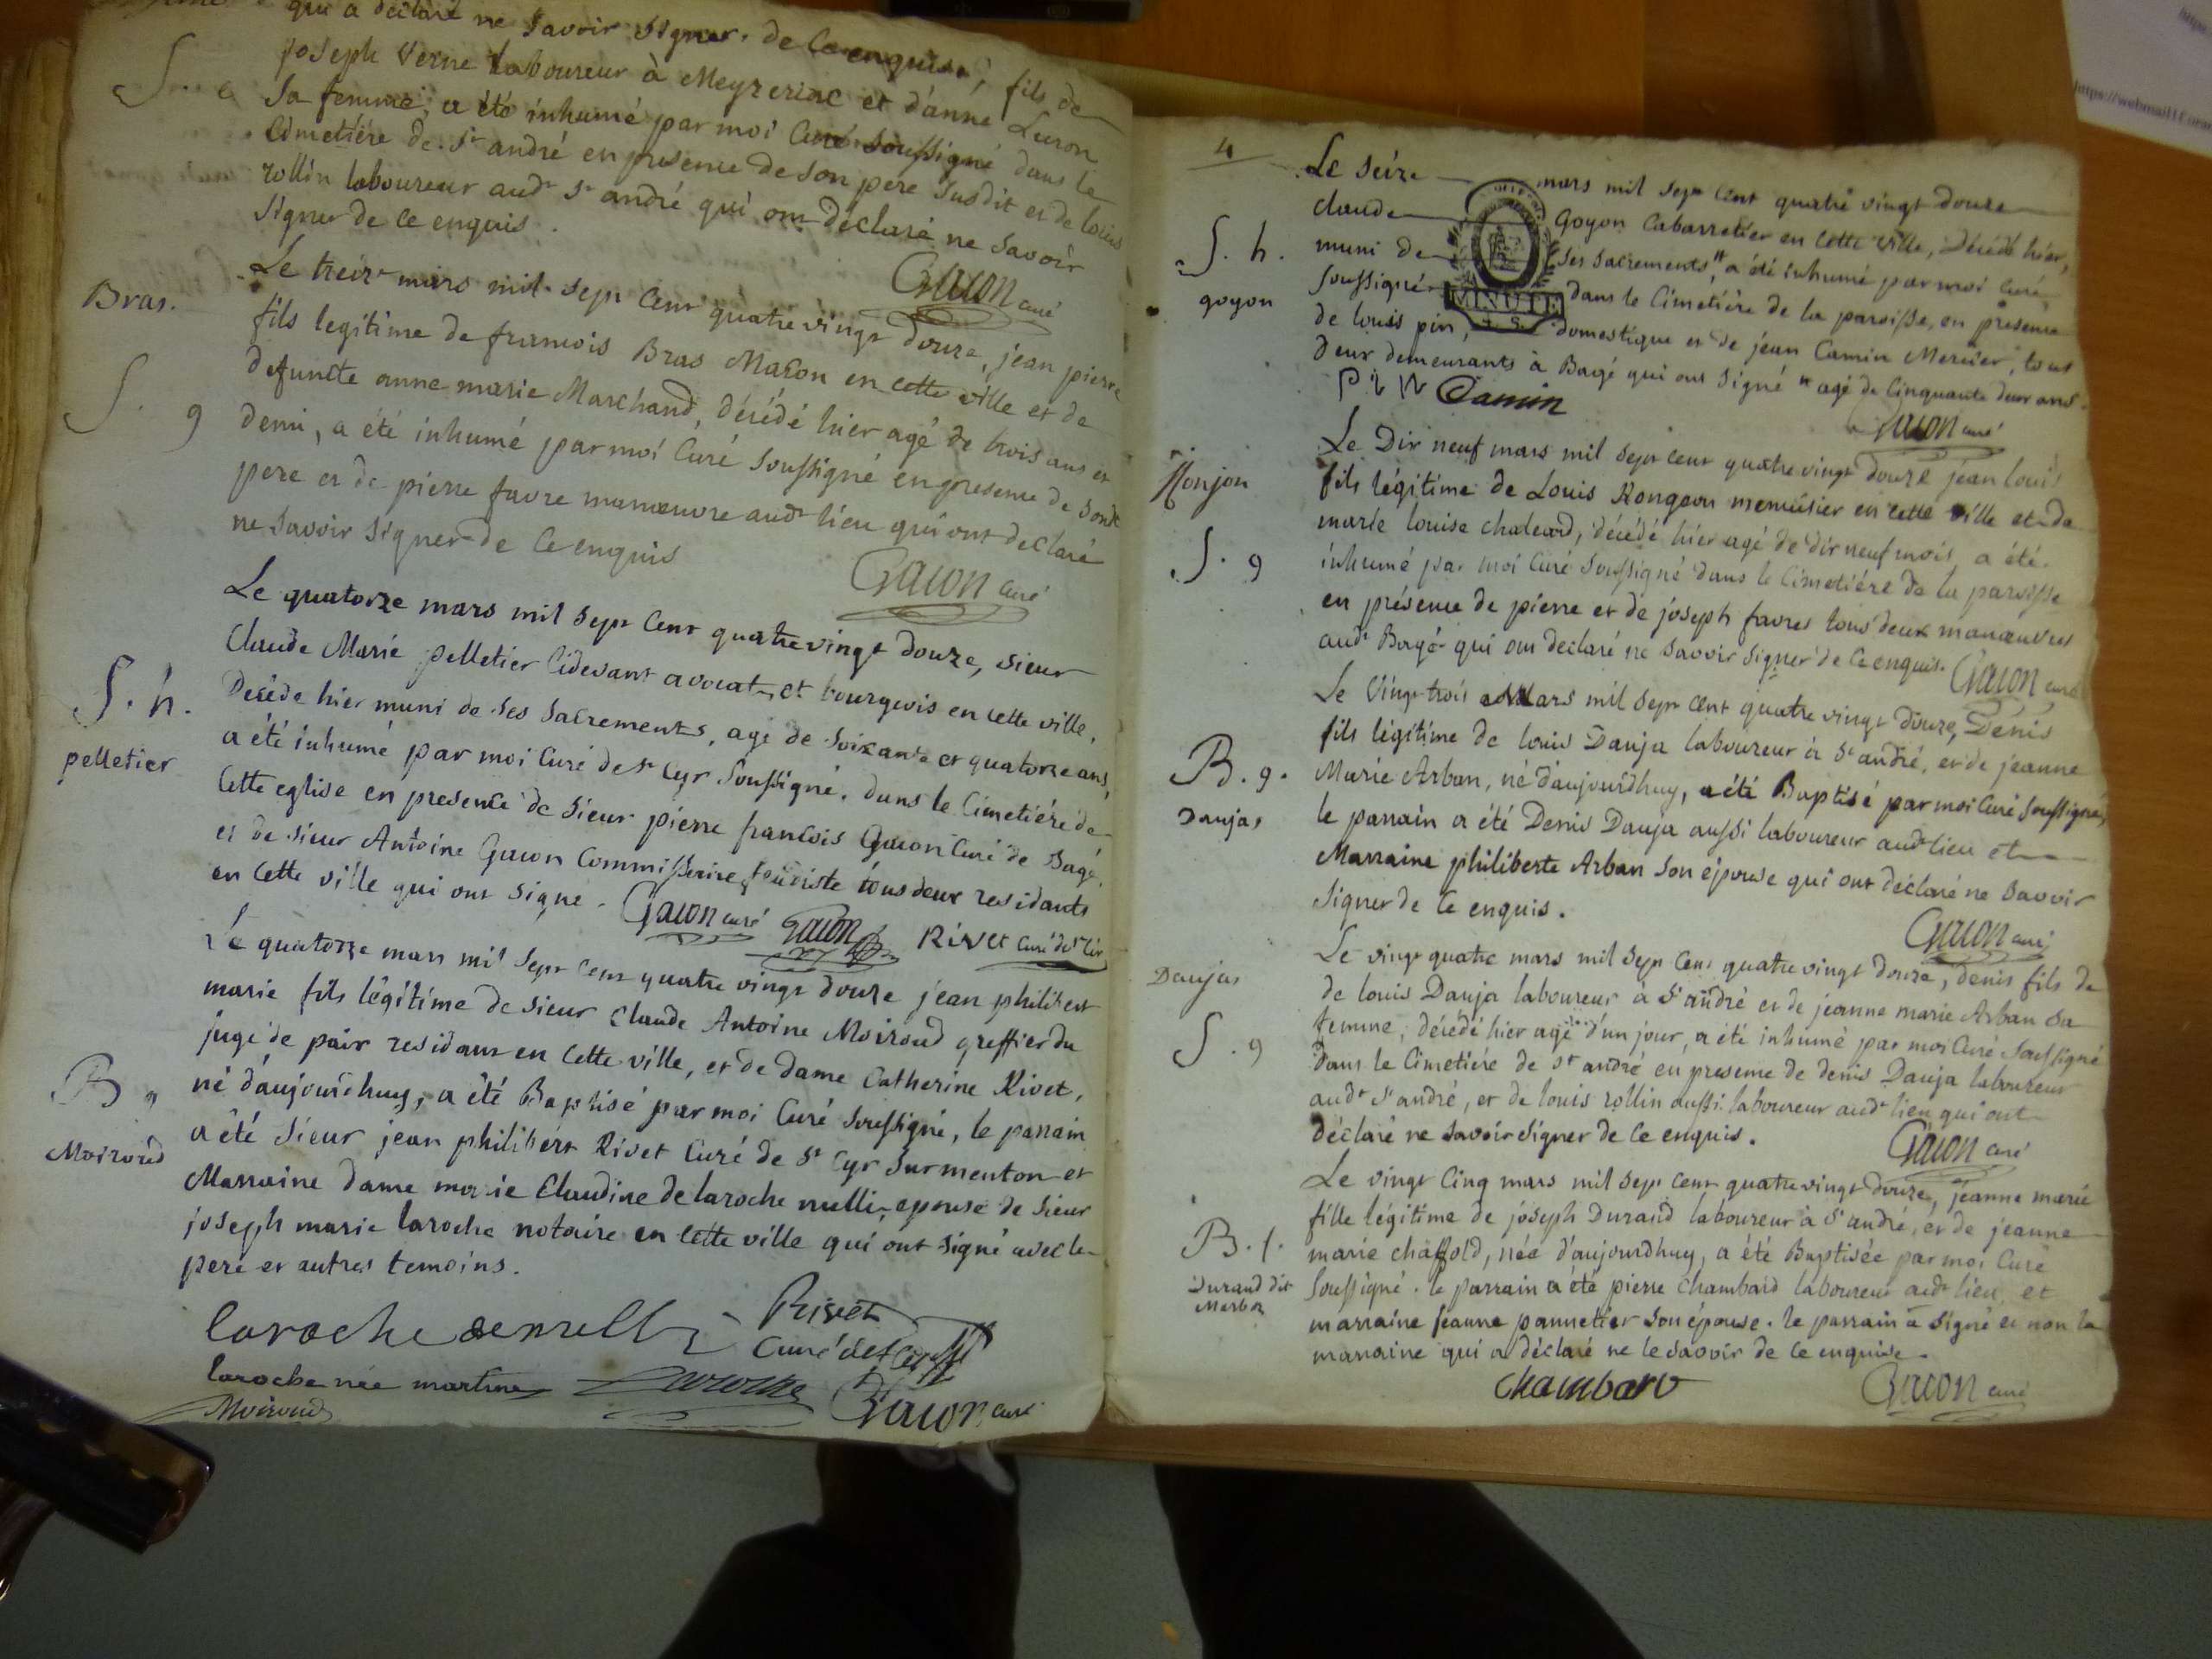 qui a déclaré ne Savoir Signer de ce enquise, fils de
joseph Verne laboureur à Meyzeriac et d'anne Luron
Sa femme, a été inhumé par moi Curé Soussigné dans le
Cimetiére de St andré en presence de Son pere Susdit et de louis
rollin laboureur audt St andré qui ont déclaré ne Savoir
Signer de Ce enquis.
Gacon curé
Bras.
S. g
Le treize mars mil Sept Cent quatre vingt douze, jean pierre
fils legitime de francois Bras Macon en cette ville et de
defuncte anne marie Marchand, décédé hier agé de trois ans et
demi, a été inhumé par moi Curé Soussigné en presence de Sondt
pere et de pierre favre manœuvre audt lieu qui ont declaré
ne Savoir Signer de Ce enquis
Gacon curé
S. h.
pelletier
Le quatorze mars mil Sept Cent quatre vingt douze, sieur
Claude Marie pelletier cidevant avocat, et bourgeois en cette ville,
Decédé hier muni de Ses Sacrements, agé de Soixante et quatorze ans,
a été inhumé par moi Curé de St Cyr Soussigné, dans le Cimetiére de
Cette eglise en presence de Sieur pierre francois Gacon Curé de Bagé,
et de sieur Antoine Gacon Commissaire feudiste tous deux residants
en Cette ville qui ont Signé. Gacon curé Gacon Rivet Curé de St Cir
B. g
Moiroud
Le quatorze mars mil Sept Cent quatre vingt douze jean philibert
marie fils légitime de sieur Claude Antoine Moiroud greffier du
juge de paix residant en Cette ville, et de dame Catherine Rivet,
né d'aujourd'huy, a été Baptisé par moi Curé Soussigné, le parrain
a été Sieur jean philibert Rivet Curé de St Cyr Sur menton et
Marraine dame marie Claudine de laroche nulli, epouse de Sieur
joseph marie laroche notaire en Cette ville qui ont Signé avec le
pere et autres temoins.
laroche denulli Rivet
Curé de St Cyr
laroche née martine laroche Gacon curé
Moiroud
4
S. h.
goyon
Le Seize mars mil Sept Cent quatre vingt douze
claude Goyon Cabarretier en Cette ville, Décédé hier,
muni de Ses Sacrements, a été inhumé par moi Curé
Soussigné dans le Cimetiére de la paroisse, en presence
MINUTE
de louis pin, domestique et de jean Camin Mercier, tous
deux demeurants à Bagé qui ont Signé agé de Cinquante deux ans.
Pin Camin
Gacon curé
Ronjon
S. g
Le Dix neuf mars mil Sept Cent quatre vingt douze jean louis
fils légitime de Louis Rongeon menuisier en cette ville et de
marie louise chaleard, décédé hier agé de dix neuf mois, a été
inhumé par moi Curé Soussigné dans le Cimetiére de la paroisse
en présence de pierre et de joseph favres tous deux manœuvres
audt Bagé qui ont declaré ne Savoir Signer de Ce enquis. Gacon curé
B. g.
Daujas
Le Vingt trois Mars mil Sept Cent quatre vingt douze, Denis
fils légitime de louis Dauja laboureur à St andré, et de jeanne
Marie Arban, né d'aujourdhuy, a été Baptisé par moi Curé Soussigné,
le parrain a été Denis Dauja aussi laboureur audt lieu et
Marraine philiberte Arban Son épouse qui ont déclaré ne Savoir
Signer de Ce enquis.
Gacon curé
Daujas
S. g
Le vingt quatre mars mil Sept Cent quatre vingt douze, denis fils de
de louis Dauja laboureur à St andré et de jeanne marie Arban Sa
femme, décédé hier agé d'un jour, a été inhumé par moi Curé Soussigné
Dans le Cimetiére de St andré en presence de denis Dauja laboureur
audt St andré, et de louis rollin aussi laboureur audt lieu qui ont
déclaré ne Savoir Signer de Ce enquis.
Gacon curé
B. f.
Durand dit
Marboz
Le vingt Cinq mars mil Sept Cent quatre vingt douze, jeanne marie
fille légitime de joséph Durand laboureur à St andré, et de jeanne
marie chaffold, née d'aujourdhuy, a été Baptisée par moi Curé
Soussigné. le parrain a été pierre chambard laboureur audt lieu, et
marraine jeanne pannetier Son épouse. le parrain a Signé et non la
marraine qui a déclaré ne le Savoir de Ce enquise.
Chambard Gacon curé